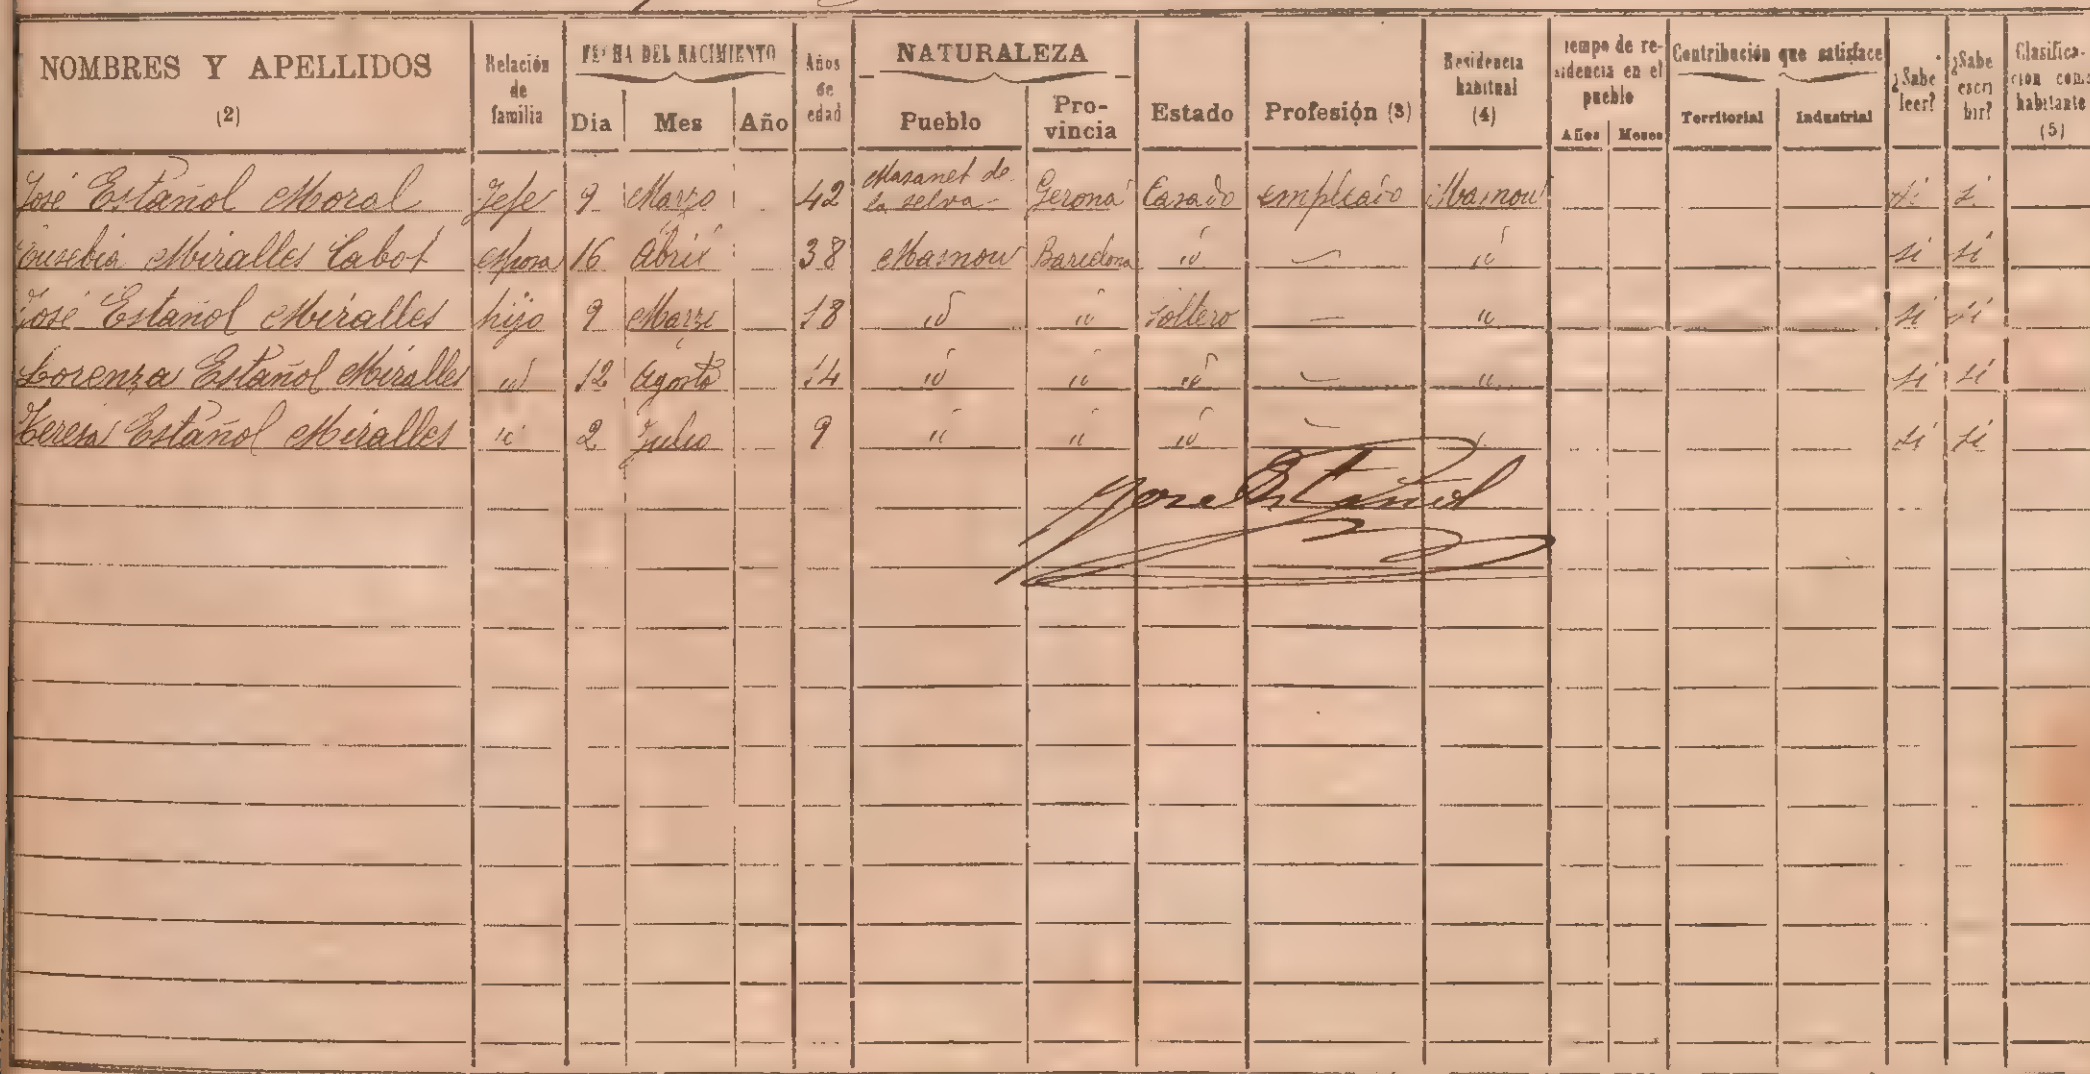 NOMBRES Y APELLIDOS (2) Relación de familia FECHA DEL NACIMIENTO Dia Mes Año Años de edad NATURALEZA Pueblo Pro-vincia Estado Profesión (3) Residencia habitual (4) iempo de re-sidencia en el pueblo Años Meses Contribución que satisface Territorial Industrial ¿Sabe leer? ¿Sabe escri bir? Clasifica-cion como habitante (5)
José Estañol Moral Jefe 9 Marzo 42 Masanet de la selva Gerona Casado empleado Masnou si si
Eusebia Miralles Cabot esposa 16 Abril 38 Masnou Barcelona id — id si si
José Estañol Miralles hijo 9 Marzo 18 id id Soltero — id si si
Lorenza Estañol Miralles id 12 Agosto 14 id id id — id si si
Teresa Estañol Miralles id 2 Julio 9 id id id — si si
Jose Estañol